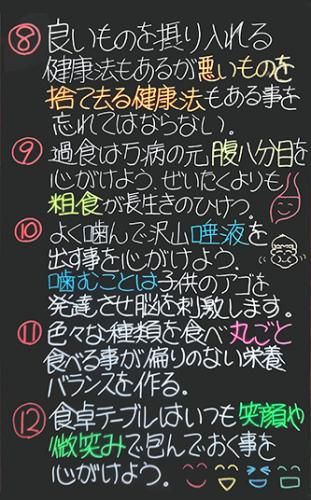 ⑧良いものを摂り入れる
健康法もあるが悪いものを
捨て去る健康法もある事を
忘れてはならない。
⑨過食は万病の元腹八分目を
心がけよう、ぜいたくよりも
粗食が長生きのひけつ。
⑩よく噛んで沢山唾液を
出す事を心がけよう。
噛むことは子供のアゴを
発達させ脳を刺激します。
⑪色々な種類を食べ丸ごと
食べる事が偏りのない栄養
バランスを作る。
⑫食卓テーブルはいつも笑顔や
微笑みで包んでおく事を
心がけよう。